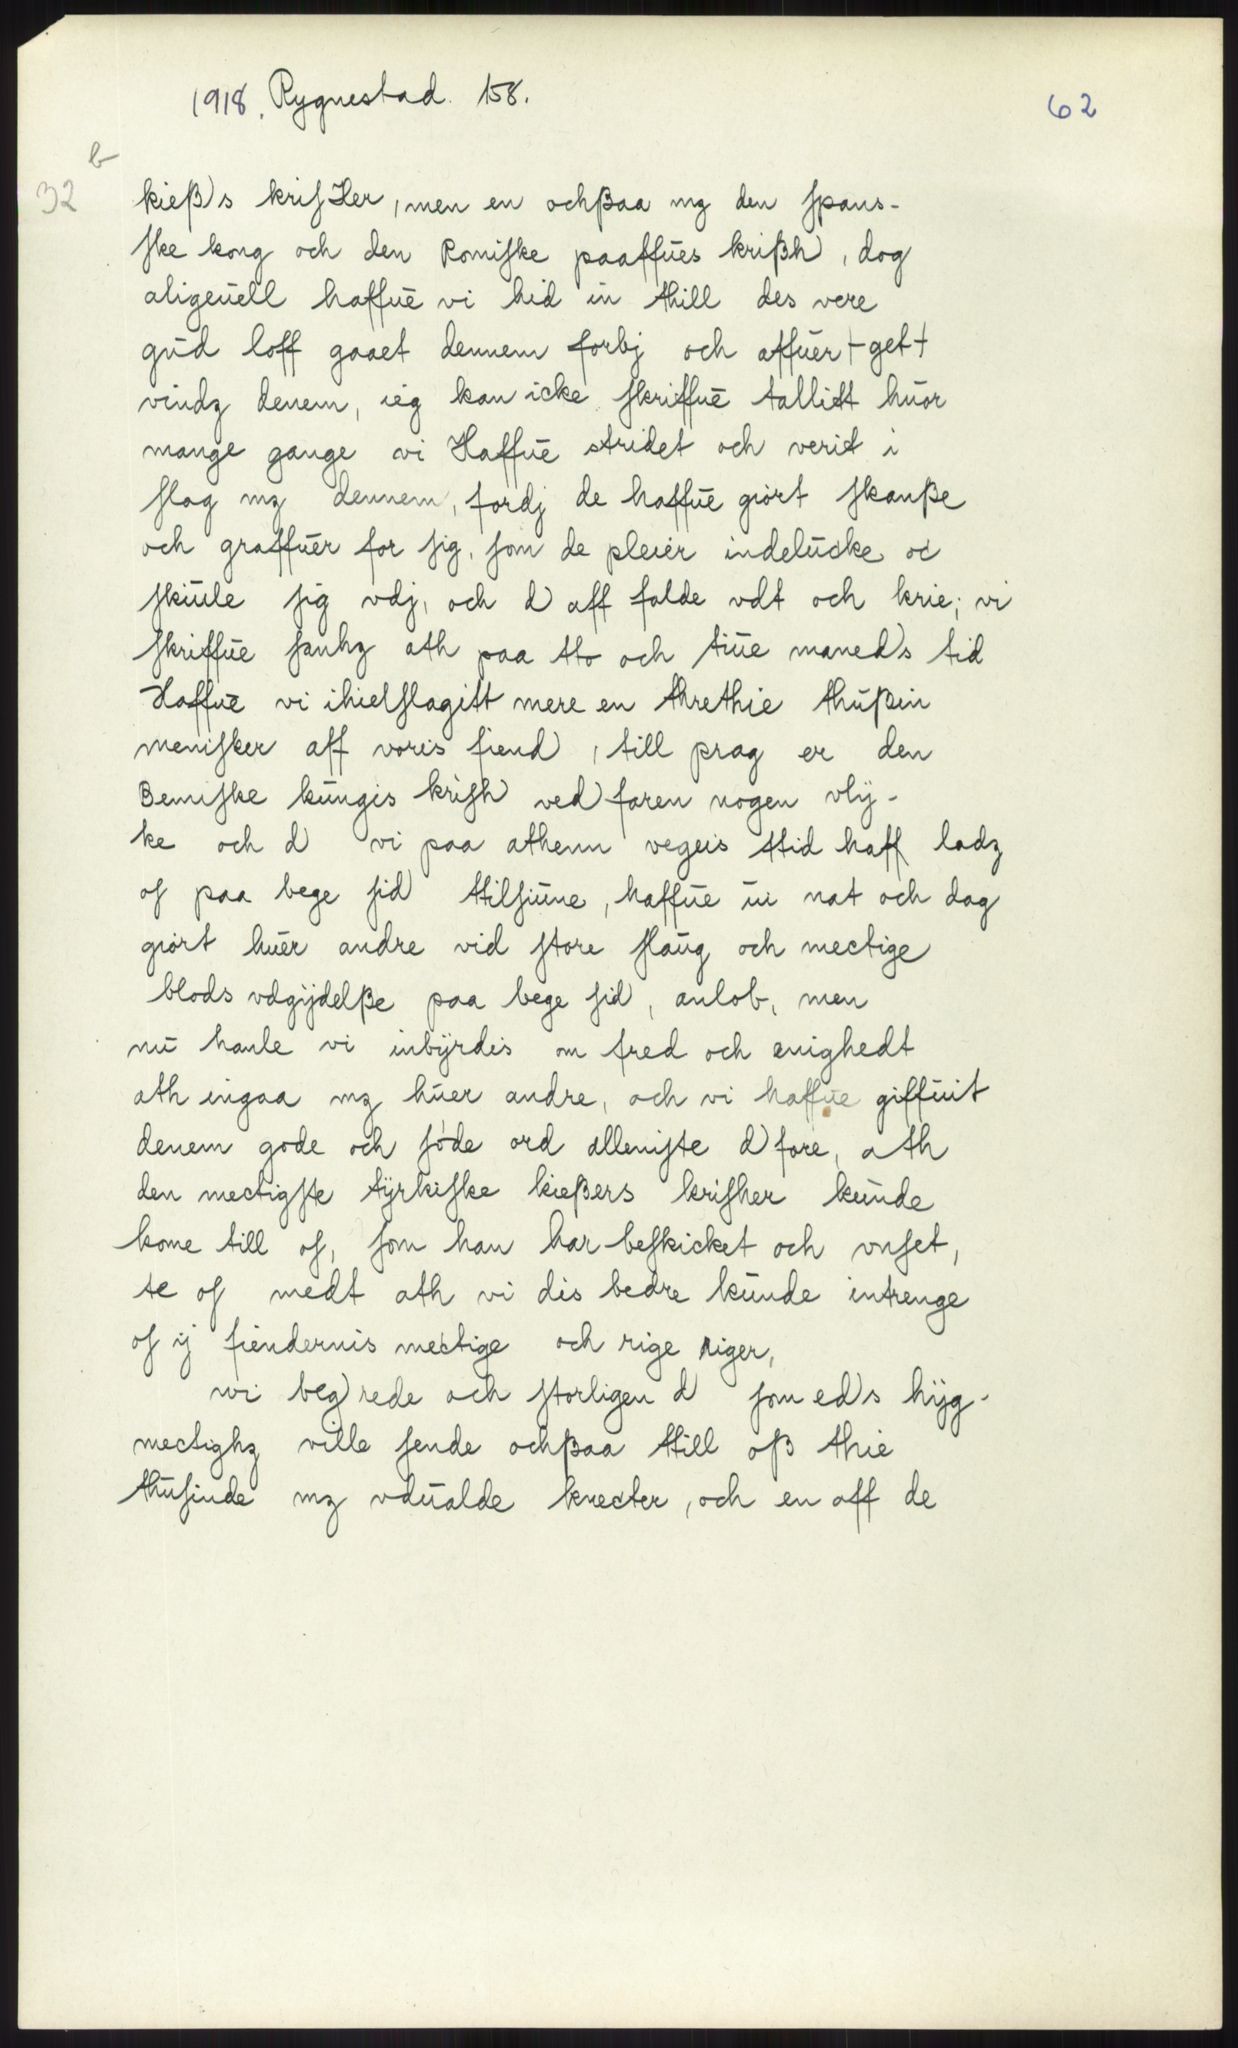 1918. Rygnestad. 158.
62
b
32
kieß)s kriſHer, men en ochßaa mz den ſpans-
ſke kong och den Romiſke paaffŭes krißh, dog
aligeŭell haffŭe vi hid in thill des vere
gŭd loff gaaet dennem forbj och affŭer +get+
vindz denem, ieg kan icke ſkriffŭe tallitt hŭor
mange gange vi Haffŭe stridet och verit i
ſlag mz dennem, fordj de haffŭe giört ſkanße
och graffŭer for ſig, ſom de pleier indelŭcke oc
ſkiŭle ſig vdj, och d) aff falde vdt och krie; vi
ſkriffŭe ſanhz ath paa tto och tiŭe maned)s tid
Haffŭe vi ihielſlagitt mere en threthie thŭßin
meniſker aff voris fiend), till prag er den
Bemiſke kŭngis kriſh) ved)faren nogen vlÿ-
ke och d) vi paa athenn vegeis ttid haff ladz
oſ paa bege ſid) ttilſiŭne, haffŭe ŭi nat och dag
giört hŭer andre vid ſtore ſlaŭg och mectige
blods vdgÿdelße paa bege ſid), anlob, men
nŭ hanle vi inbÿrdis om fred och enighedt
ath ingaa mz hŭer andre, och vi haffŭe giffŭit
denem gode och ſöde ord alleniſte d)fore, ath
den mectigſte tÿrkiſke kießers kriſher kŭnde
kome till oſ, ſom han har beſkicket och vnſet,
te oſ medt ath vi dis bedre kŭnde intrenge
oſ ij fiendernis mectige och rige riger,
wi beg)rede och ſtorligen d) ſom ed)s hÿg-
mectighz ville ſende ochßaa ttill oß thie
thŭſinde mz vdŭalde knecter, och en aff de